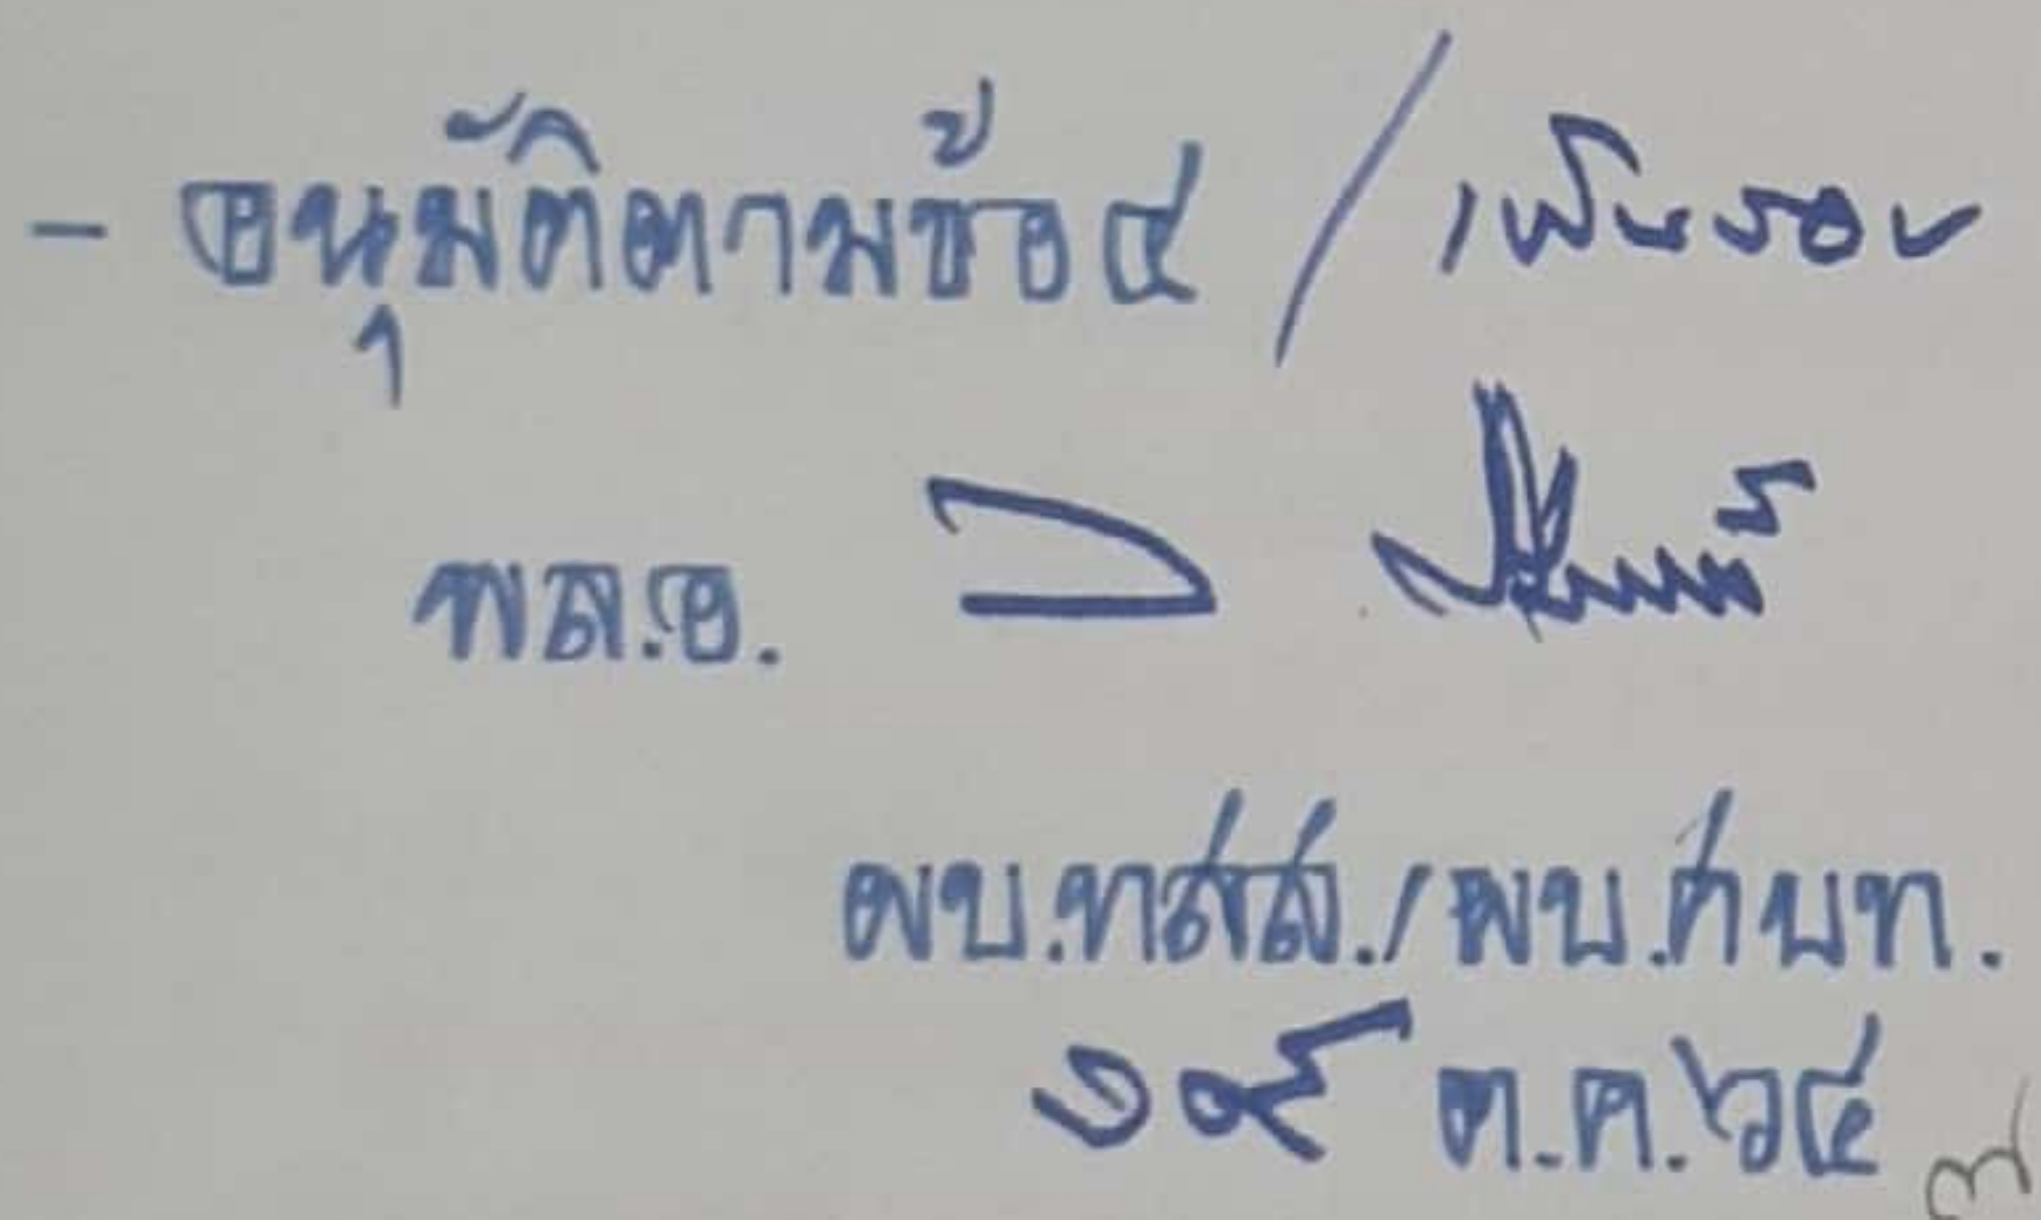 - อนุมัติตามข้อ ๔ / เห็นชอบ
พล.อ.
ผบ.ทสส./ผบ.ศบท.
๑๙ ต.ค. ๖๔